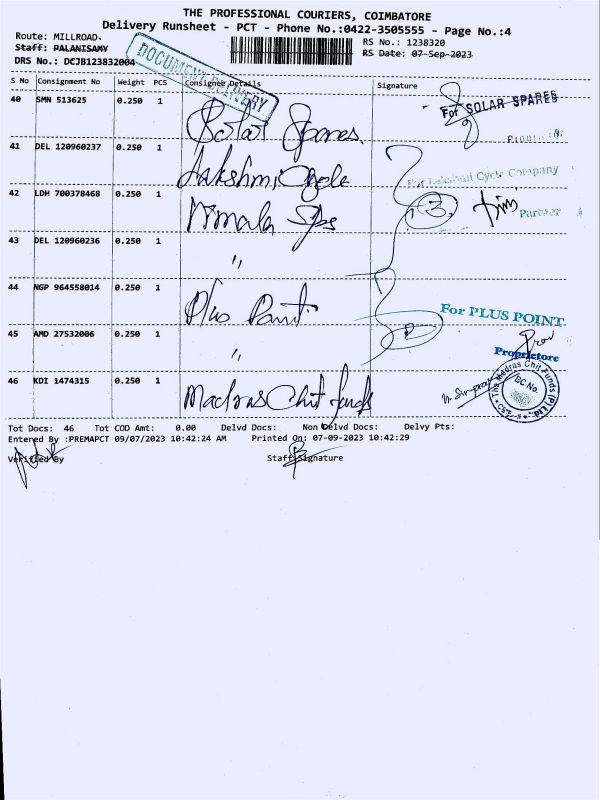 THE PROFESSIONAL COURIERS, COIMBATORE
Delivery Runsheet - PCT - Phone No.:0422-3505555 - Page No.:4
Route: MILLROAD.
RS No.: 1238320
Staff: PALANISAMY
RS Date: 07-Sep-2023
DRS No.: DCJB123832004
DOCUMENT DELIVERY
S No Consignment No Weight PCS Consignee Details Signature
40 SMN 513625 0.250 1 Solar Spares. For SOLAR SPARES
41 DEL 120960237 0.250 1 Lakshmi Cycle For Lakshmi Cycle Company
42 LDH 700378468 0.250 1 Nirmala Sps 3. Partner
43 DEL 120960236 0.250 1 "
44 NGP 964558014 0.250 1 Plus Point For PLUS POINT
45 AMD 27532006 0.250 1 " 2 Proprietore
46 KDI 1474315 0.250 1 Madras Chit funds The Madras Chit Funds (P) Ltd
Tot Docs: 46 Tot COD Amt: 0.00 Delvd Docs: Non Delvd Docs: Delvy Pts:
Entered By :PREMAPCT 09/07/2023 10:42:24 AM Printed On: 07-09-2023 10:42:29
Verified By Staff Signature